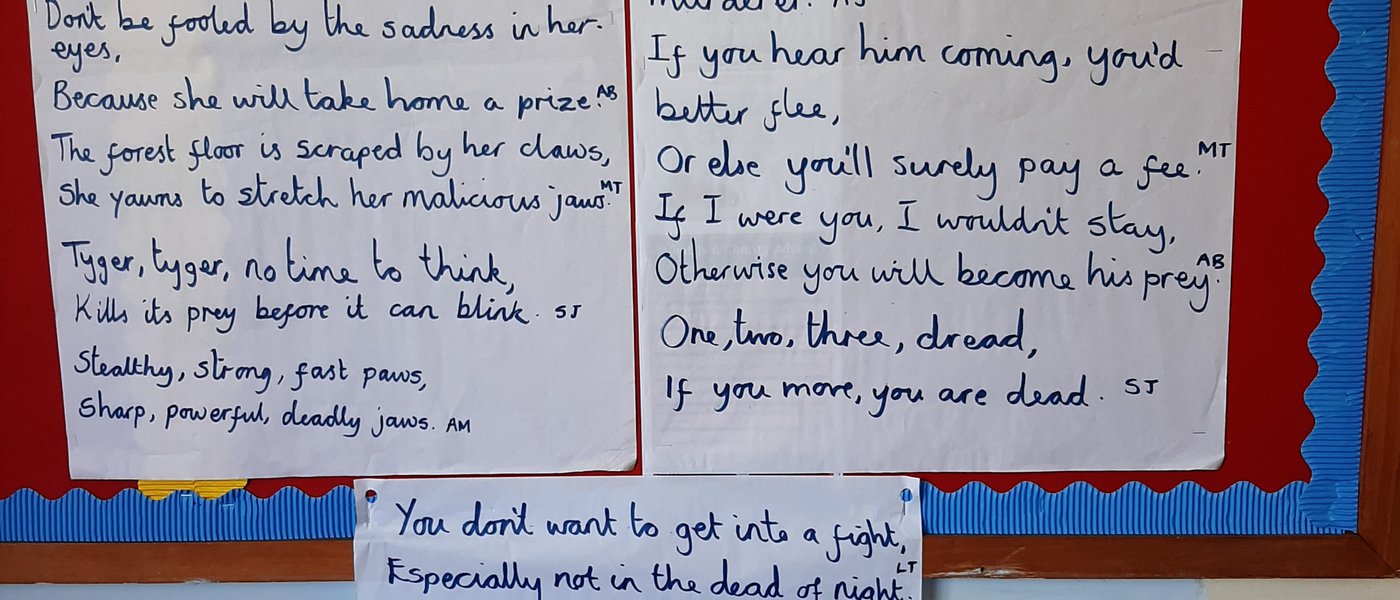 Don't be fooled by the sadness in her
eyes,
Because she will take home a prize. AB
The forest floor is scraped by her claws,
She yawns to stretch her malicious jaws. MT
Tyger, tyger, no time to think,
Kills its prey before it can blink. SJ
Stealthy, strong, fast paws,
Sharp, powerful, deadly jaws. AM
If you hear him coming, you'd
better flee,
Or else you'll surely pay a fee. MT
If I were you, I wouldn't stay,
Otherwise you will become his prey. AB
One, two, three, dread,
If you move, you are dead. SJ
You don't want to get into a fight,
Especially not in the dead of night. LT